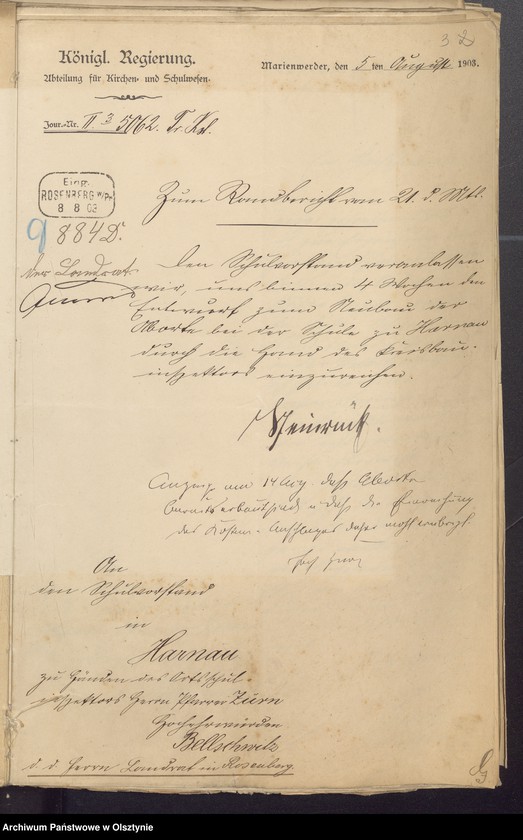 32
Königl. Regierung.
Abteilung für Kirchen- und Schulwesen.
Marienwerder, den 5 ten August 1903.
Jour.-Nr. II. 3 5062.
Eing.
ROSENBERG W/Pr.
8 8 03
9 884 D.
Zum Randbericht vom 21. d. Mts.
der Landrat
Den Schulvorstand veranlassen
wir, uns binnen 4 Wochen den
Entwurf zum Neubau der
Aborte bei der Schule zu Harnau
durch die Hand des Kreisbau-
inspektors einzureichen.
Anzeige am 14 Aug. daß Aborte
bereits erbaut sind u daß die Einreichung
des Kosten-Anschlages daher wohl
An
den Schulvorstand
in
Harnau
zu Händen des Ortsschul-
inspektors Herrn Pfarrer Zürn
Hochehrwürden
Bellschwitz
d. d. Herrn Landrat in Rosenberg
Archiwum Państwowe w Olsztynie